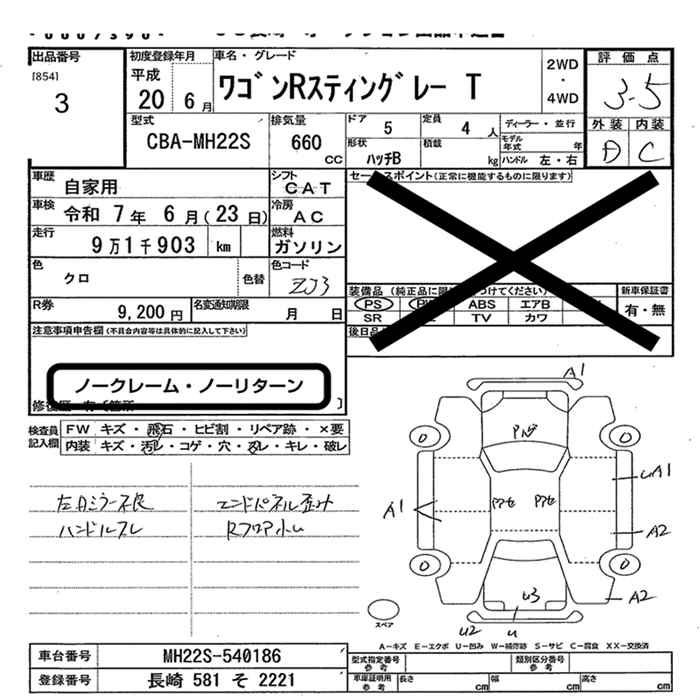 出品番号
[854]
3
初度登録年月
平成
20 6月
車名・グレード
ワゴンRスティングレー T
2WD
・
4WD
評価点
3.5
外装 内装
D C
型式
CBA-MH22S
排気量
660
CC
ドア
5
定員
4 人
形状
ハッチB
積載
kg
ディーラー・並行
モデル年式 年
ハンドル 左・右
車歴
自家用
シフト
CAT
車検
令和 7年 6月(23日)
冷房
AC
走行
9万1千903 km
燃料
ガソリン
色
クロ
色替
色コード
ZJ3
R券
9,200円
名変通知期限
月 日
セールスポイント(正常に機能するものに限ります)
PS ABS エアB
SR TV カワ
新車保証書
有・無
注意事項申告欄(不具合内容等は具体的に記入して下さい)
ノークレーム・ノーリターン
検査員
記入欄
FW キズ・飛石・ヒビ割・リペア跡・×要
内装 キズ・汚レ・コゲ・穴・スレ・キレ・破レ
左ドアミラー不良
ハンドルスレ
エンドパネル歪み
Rフロア小U
A1
Pんダ
0 0
A1
UA1
Pアセ Pアセ
A2
0 0
U3
A2
U2 U
スペア
A−キズ E−エクボ U−凹み W−補修跡 S−サビ C−腐食 XX−交換済
車台番号
MH22S-540186
登録番号
長崎 581 そ 2221
型式指定番号
参考
類別区分番号
参考
車庫証明用
参考
長さ cm
幅 cm
高さ cm